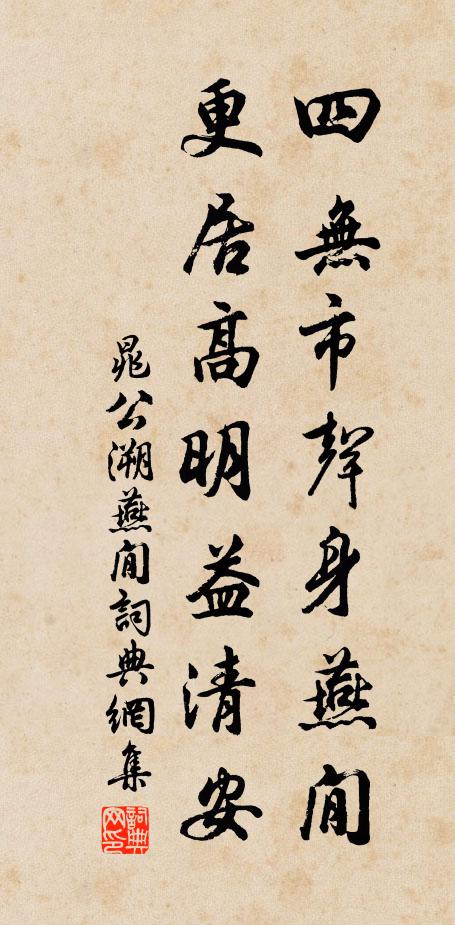 四無市聲身燕閒
更居高明益清安
晁公溯燕閒詞典網集
詞典網印